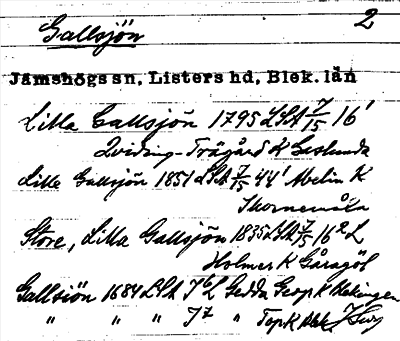 2
Gallsjön
Jämshögs sn, Listers hd, Blek. län
Lilla Gallsjön 1795 LSA 7/15 16'
Qviding-Trägård K Geslunda
Lille Gallsjön 1851 LSA 7/15 44' Abelin K
Thornemåla
Store, Lilla Gallsjön 1835 LSA 7/15 16² L
Holmer K Gåragöl
Gallsiön 1684 LSA Gedda Geogr K Blekingen
" " " " Top K